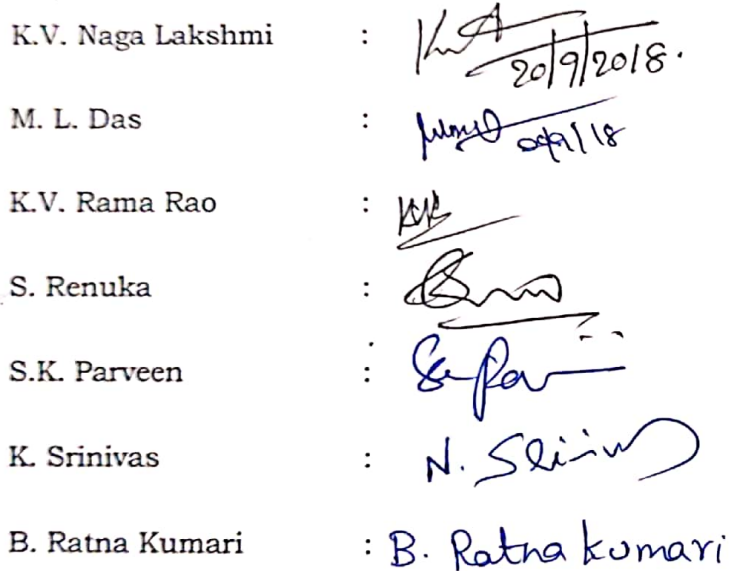 K.V. Naga Lakshmi :
20/9/2018.
M. L. Das :
K.V. Rama Rao :
S. Renuka :
S.K. Parveen :
K. Srinivas : N. Srinivas
B. Ratna Kumari : B. Ratna kumari